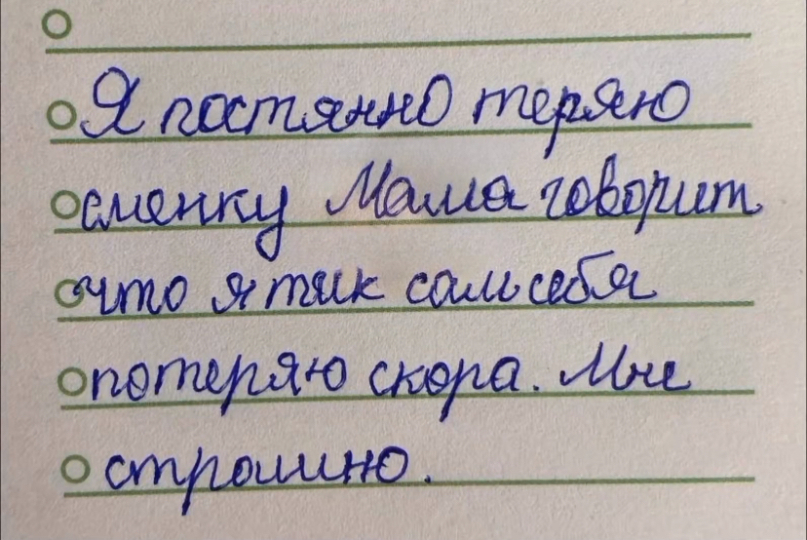 Я постоянно теряю
сменку Мама говорит
что я так сам себя
потеряю скора. Мне
страшно.